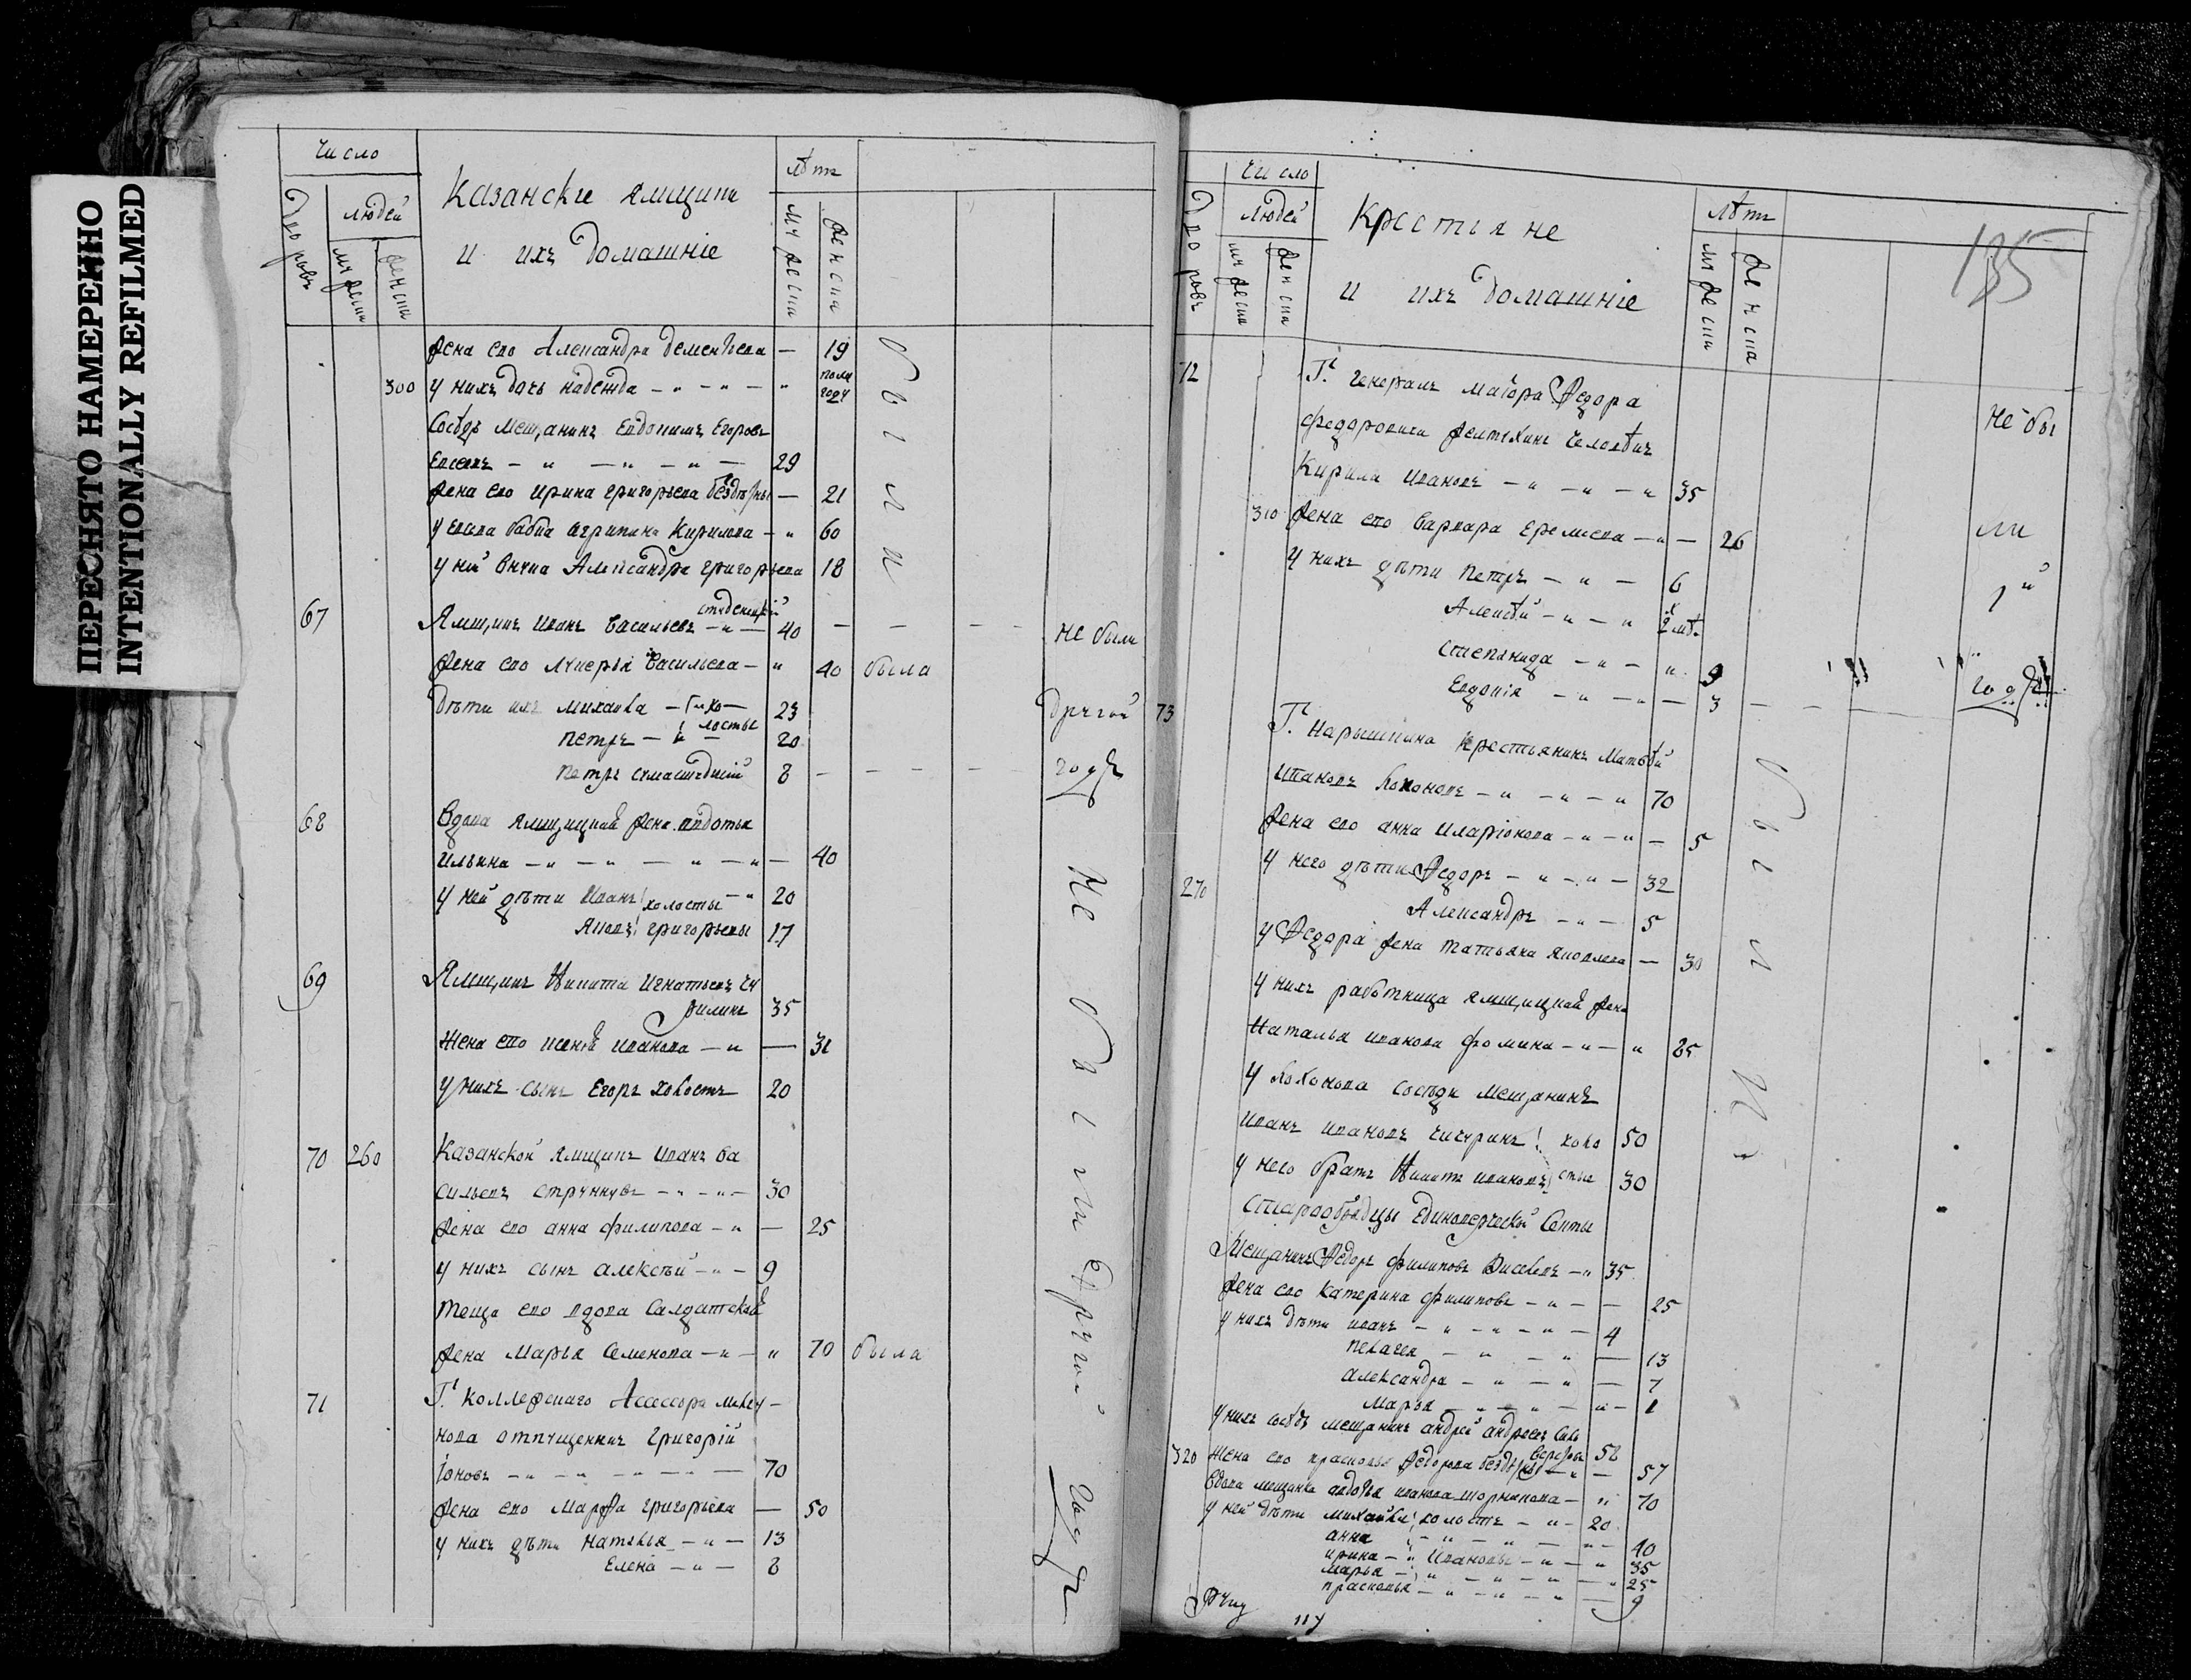 ПЕРЕСНЯТО НАМЕРЕННО
INTENTIONALLY REFILMED
Число
Дворовъ
людей
мужеска
женска
Казанские ямщики
и ихъ домашніе
лѣтъ
мужеска
женска
жена ево Александра дементьева — 19
300 у нихъ дочь надежда — " — " — " пол году
Сосѣдъ мещанинъ Евдокимъ Егоровъ
— " — " — " — 29
жена ево Ирина григорьева бездѣтны — 21
бабка агрипина Кирилова — " 60
у ней внука Александра григорьева 18
были
67 Ямщикъ иванъ васильевъ — " — 40 — — — не былъ
жена ево лукерья васильева — " 40 была
дѣти ихъ михаила — 23
петръ — " — холосты 20
петръ 8 — — — —
другой годъ
68 Вдова ямщицкая жена авдотья
ильина — " — " — " — " — 40
у ней дѣти иванъ холосты — " 20
яковъ григорьевы 17
69 Ямщикъ Никита игнатьевъ
35
жена ево иванова — " — 31
у нихъ сынъ Егоръ холостъ 20
70 260 Казанской ямщикъ иванъ ва
сильевъ — " — " — 30
жена ево анна филипова — " — 25
у нихъ сынъ алексѣй — " — 9
теща ево вдова салдатская
жена марья семенова — " — " 70 была
71 Г. коллежскаго Ассесора
отпущенникъ григорій
іоновъ — " — " — " — " — 70
жена ево марфа григорьева — 50
у нихъ дѣти наталья — " — 13
Елена — " — 8
не были другой годъ
Число
Дворовъ
людей
мужеска
женска
Крестьяне
и ихъ домашніе
лѣтъ
мужеска
женска
135
72 Г. генералъ маіора Федора
федоровича человѣкъ
Кирила ивановъ — " — " — " 35
310 жена ево варвара еремеева — " — 26
у нихъ дѣти петръ — " — 6
Алексѣй — " — " 2
степанида — " — " 9
Евдокія — " — " — 3
не были годъ
73 Г. Нарышкина крестьянинъ матвѣй
ивановъ — " — " — " 70
жена ево анна иларіонова — " — " — 5
270 у него дѣти Федоръ — " — " — 32
Александръ — " — 5
у Федора жена татьяна яковлева — 30
у нихъ работница ямщицкая жена
Наталья иванова фомина — " — " 25
у сосѣди мещанинъ
иванъ ивановъ чичуринъ холо 50
у него братъ Никита ивановъ сты 30
были
старообрядцы единоверческой секты
Мещанинъ Федоръ филиповъ — " 35
жена ево катерина филипова — " — — 25
у нихъ дѣти иванъ — " — " — " — 4
пелагея — " — " — 13
александра — " — " — 7
марья — " — " — " — 1
у нихъ сосѣдъ мещанинъ андрей андреевъ 58
320 жена ево прасковья Федорова бездѣтны — " — 57
вдова мещанка авдотья иванова — " 70
у ней дѣти михайла холостъ — " — 20
анна — " — " — " — 40
ирина — " ивановы — " — " 35
марья — " — " — " — " 25
прасковья — " — " — " — 9